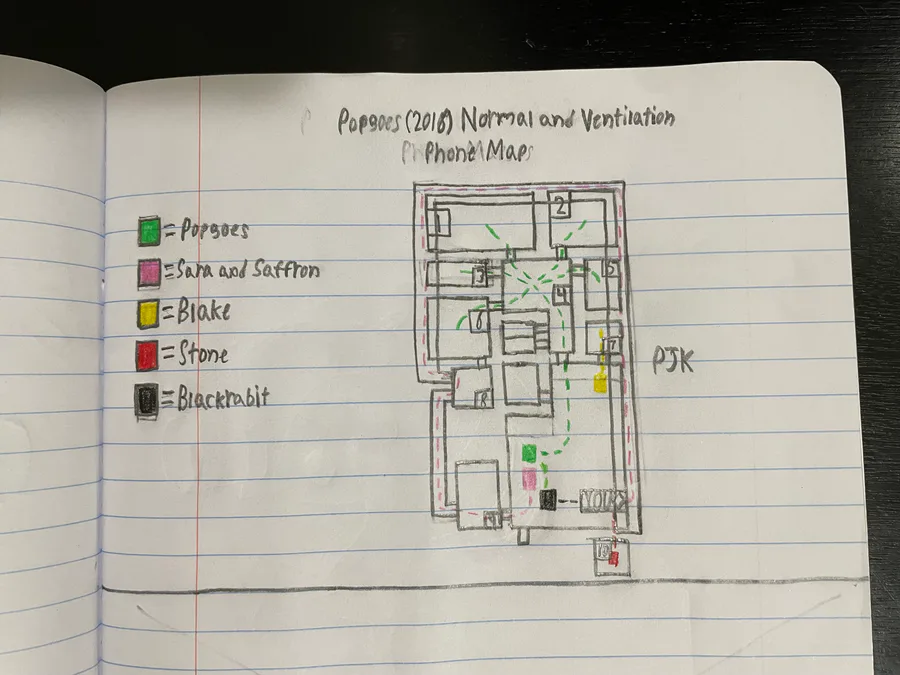 Popgoes (2016) Normal and Ventilation
Phone Maps
= Popgoes
= Sara and Saffron
= Blake
= Stone
= Blackrabit
PJK
1
2
3
4
5
6
7
8
9
YOU
10